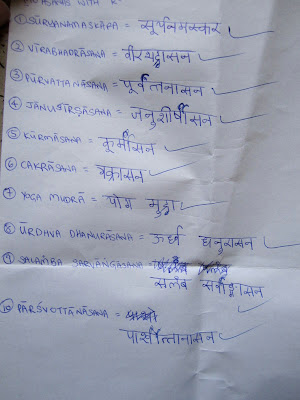 WITH R
① SŪRYANAMASKĀRA = सूर्यनमस्कार
② VĪRABHADRĀSANA = वीरभद्रासन
③ PŪRVATTANĀSANA = पूर्वतनासन
④ JĀNUŚĪRṢĀSANA = जनुशीर्षासन
⑤ KŪRMĀSANA = कूर्मासन
⑥ CAKRĀSANA = चक्रासन
⑦ YOGA MUDRĀ = योग मुद्रा
⑧ ŪRDHVA DHANURĀSANA = ऊर्ध्व धनुरासन
⑨ SALAMBA SARVĀNGĀSANA =
सलंब सर्वाङ्गासन
⑩ PĀRŚVOTTĀNĀSANA =
पार्श्वोत्तानासन